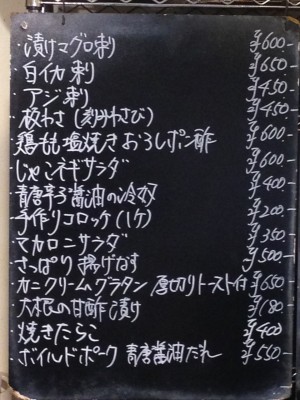 ・漬けマグロ刺 ¥600-
・白イカ刺 ¥650
・アジ刺 ¥450
・板わさ(刻みわさび) ¥450-
・鶏もも塩焼きおろしポン酢 ¥600-
・じゃこネギサラダ ¥600-
・青唐辛子醤油の冷奴 ¥400
・手作りコロッケ(1ケ) ¥200-
・マカロニサラダ ¥350
・さっぱり揚げなす ¥500-
・カニクリームグラタン 厚切りトースト付 ¥650
・大根の甘酢漬け ¥180
・焼きたらこ ¥400
・ボイルドポーク 青唐醤油だれ ¥550-